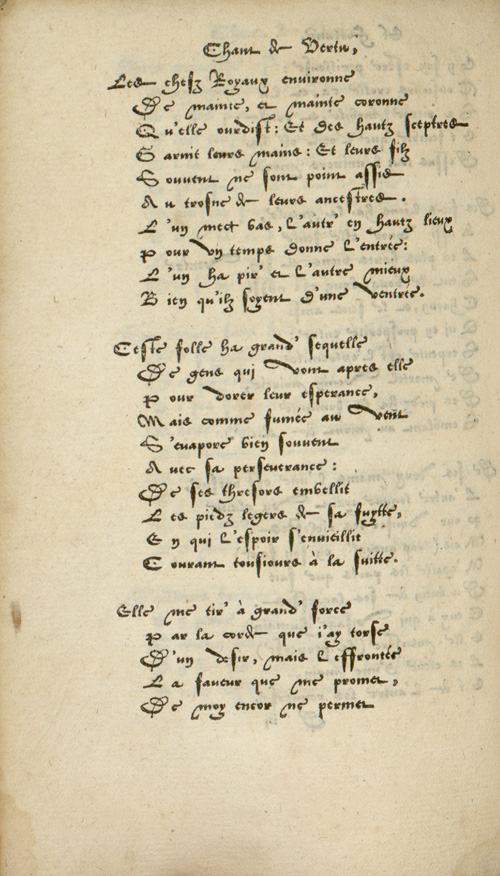 Chant de Vertu,
Les chefz Royaux environne
De mainte, et mainte coronne
Qu'elle ourdist: Et des hautz sceptres
Garnit leurs mains: Et leurs filz
Souvent ne sont point assis
Au trosne de leurs ancestres.
L'un mect bas, L'autr' en hautz lieux
Pour Un temps donne L'entrée:
L'un ha pir' et L'autre mieux
Bien qu'ilz soyent d'une Ventrée.
Ceste folle ha grand' sequelle
De gens qui Vont apres elle
Pour dorer leur esperance,
Mais comme fumée au Vent
S'evapore bien souvent
Avec sa perseverance:
De ses thresors embellit
Les piedz legers de sa fuytte,
En qui L'espoir s'envieillit
Courant tousiours à la suitte.
Elle me tir' à grand' force
Par la corde que i'ay torse
D'un desir, mais L'effrontée
La faveur que me promet,
De moy encor ne permet